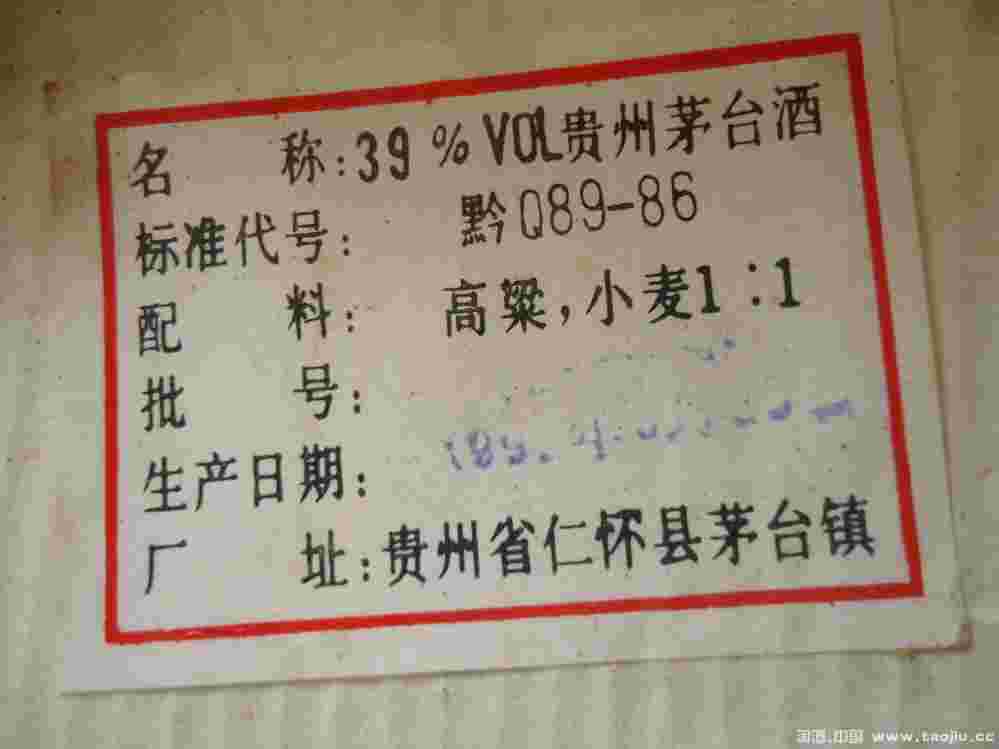 名 称:39%VOL贵州茅台酒
标准代号: 黔Q89-86
配 料: 高粱,小麦1:1
批 号:
生产日期:
厂 址:贵州省仁怀县茅台镇
www.taojiu.cc